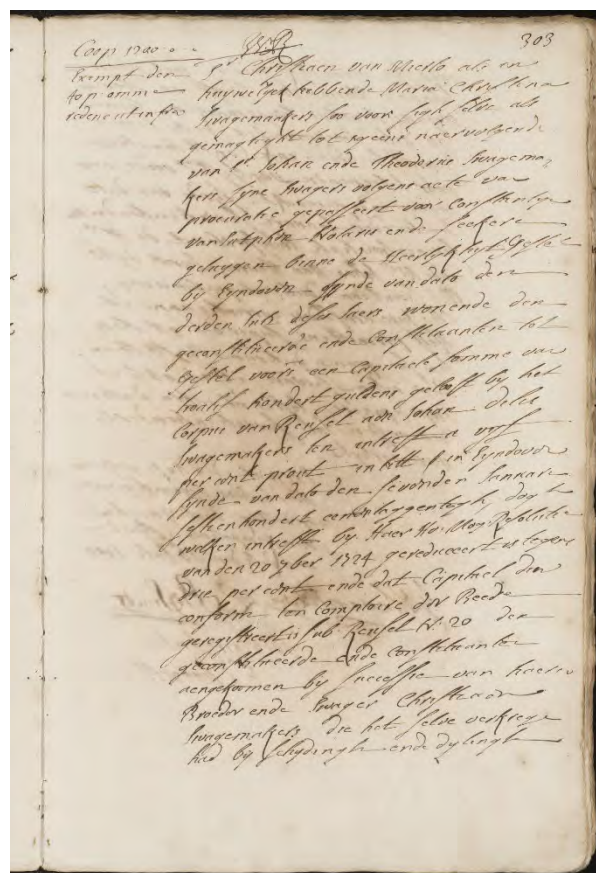 303
Coop 1740
Exempt den
40 p omme
redenen ut infra
Sr. Christiaen van Mierlo als in
huwelijck hebbende Maria Christina
Swagemaakers soo voor sigh selve als
gemaghtight tot tgeene naervolgende
van Sr. Johan ende Theodorus Swagema-
kers syne swagers volgens acte van
procuratie gepasseert voor Constantyn
van Sutphen Notaris ende seekere
getuygen binne de Heerlykhyt Gestel
by Eyndoven synde van dato den
derden deser jaers wonende den
geconstitueerde ende Constituanten tot
Gestel voors. een Capitaele somme van
twalf hondert guldens gelooft by het
Corpus van Reusel aen Johan
Swagemakers ten intrest a vyf
per cent prout in den in Eyndoven
synde van dato den sevenden Januari
sesthienhondert eenentnegentigh, dogh
welken intrest by Haer Ho: Mog: Resolutie
van den 20 7ber 1724 gereduceert is tegens
drie per cent ende dat Capitael den
conform ten Comptoire der Beede
geregistreert is sub Reusel N: 20 den
geconstitueerde ende Constituanten
aengekomen by successie van haeren
Broeder ende swager Christiaen
Swagemakers die het selve verkregen
had by schydingh ende dylingh